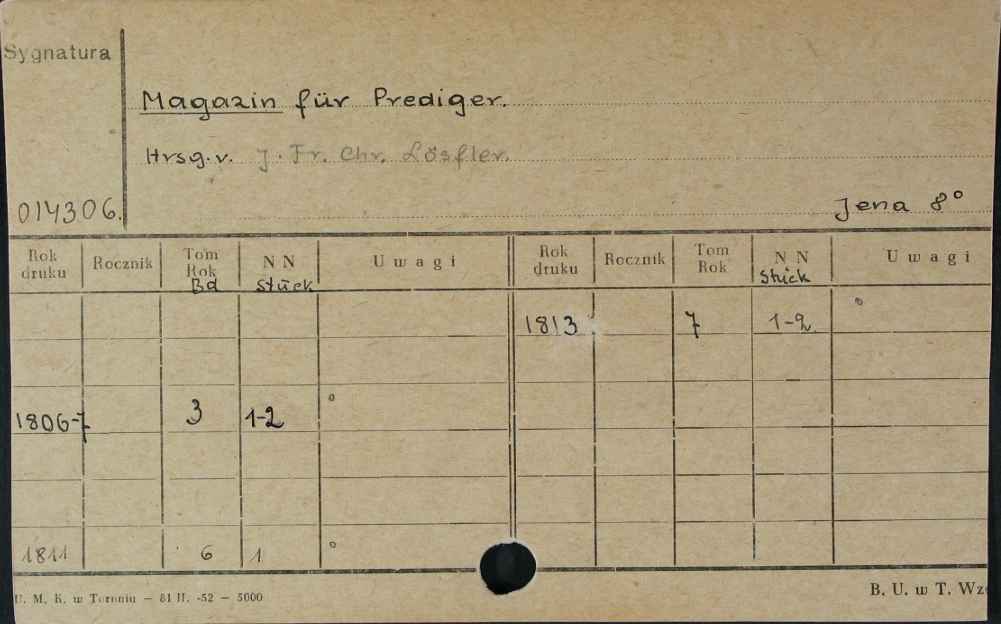 Sygnatura
Magazin für Prediger.
Hrsg. v. J. Fr. Chr. Lösfler.
014306.
Jena 8°
Rok druku Rocznik Tom Rok Bd N N Stück Uwagi Rok druku Rocznik Tom Rok N N Stück Uwagi
1813 7 1-2 °
1806-7 3 1-2 °
1811 6 1 °
U. M. K. w Toruniu — 81 II. -52 — 5000
B. U. w T. Wzó